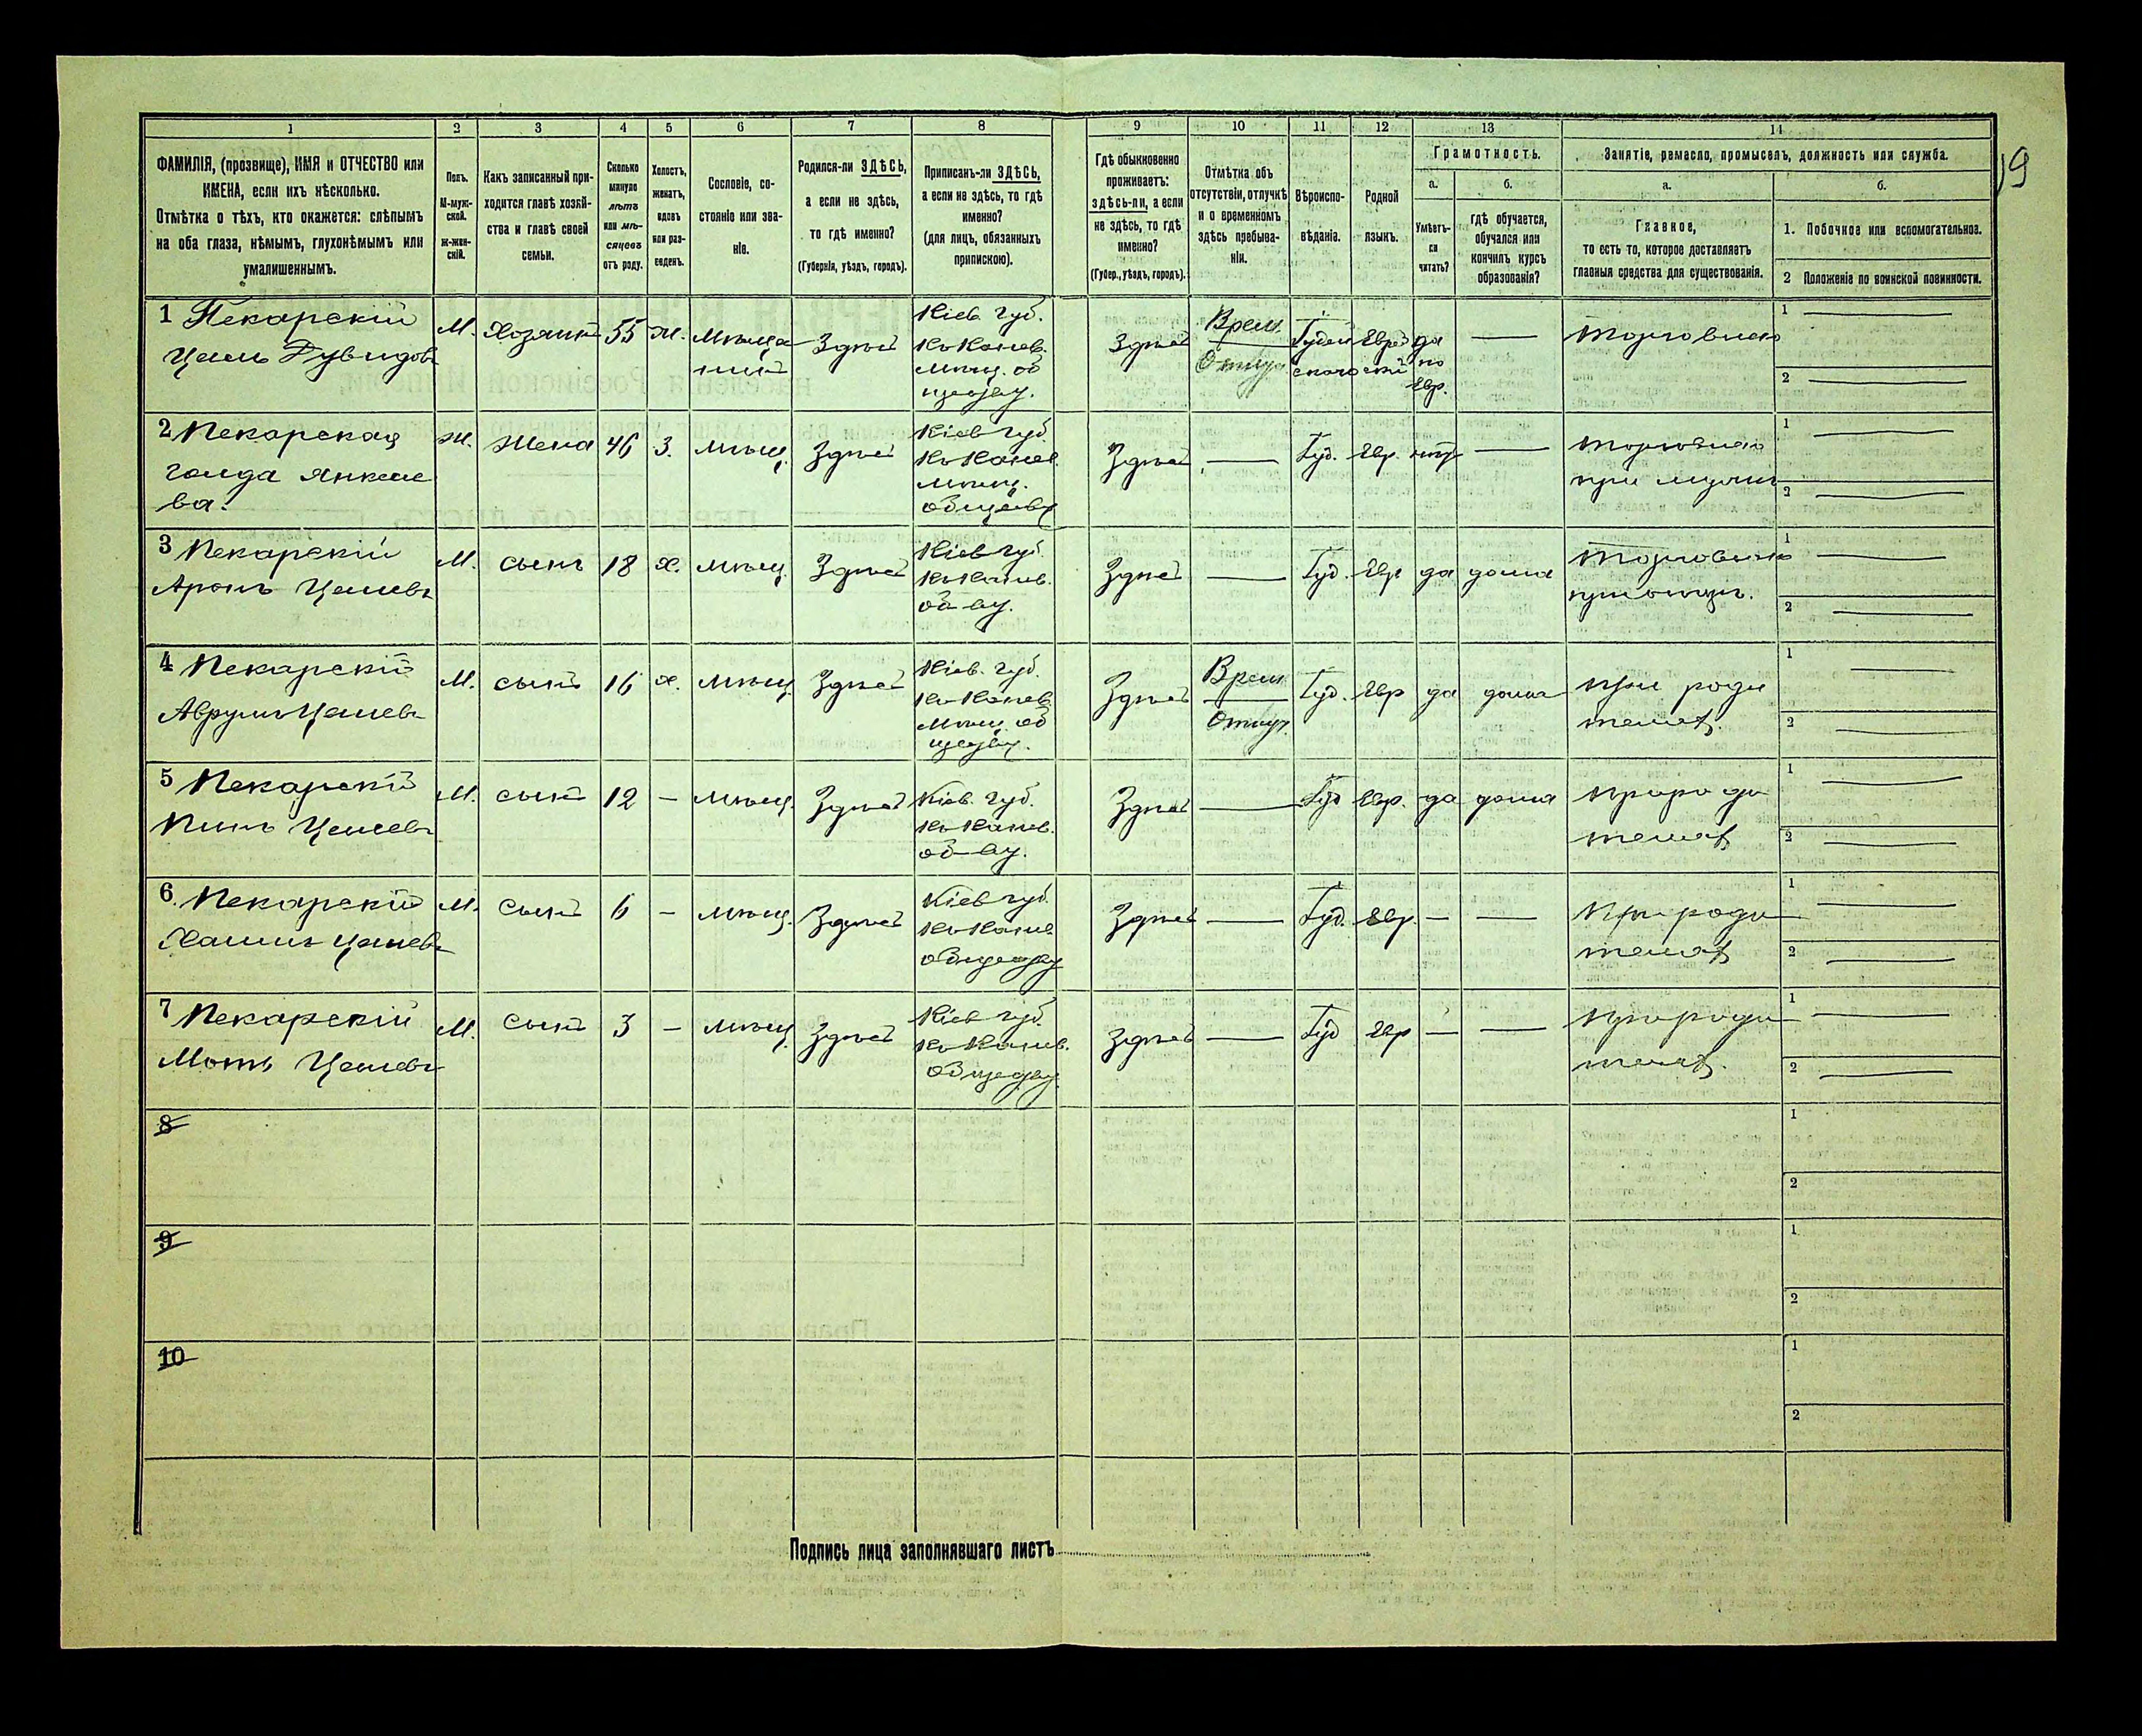 1 2 3 4 5 6 7 8 9 10 11 12 13 14
ФАМИЛІЯ, (прозвище), ИМЯ и ОТЧЕСТВО или
ИМЕНА, если ихъ нѣсколько.
Отмѣтка о тѣхъ, кто окажется: слѣпымъ
на оба глаза, нѣмымъ, глухонѣмымъ или
умалишеннымъ.
Полъ.
М-муж-
ской.
Ж-жен-
скій.
Какъ записанный при-
ходится главѣ хозяй-
ства и главѣ своей
семьи.
Сколько
минуло
лѣтъ
или мѣ-
сяцевъ
отъ роду.
Холостъ,
женатъ,
вдовъ
или раз-
веденъ.
Сословіе, со-
стояніе или зва-
ніе.
Родился-ли ЗДѢСЬ,
а если не здѣсь,
то гдѣ именно?
(Губернія, уѣздъ, городъ).
Приписанъ-ли ЗДѢСЬ,
а если не здѣсь, то гдѣ
именно?
(для лицъ, обязанныхъ
припискою).
Гдѣ обыкновенно
проживаетъ:
здѣсь-ли, а если
не здѣсь, то гдѣ
именно?
(Губер., уѣздъ, городъ).
Отмѣтка объ
отсутствіи, отлучкѣ
и о временномъ
здѣсь пребыва-
ніи.
Вѣроиспо-
вѣданіе.
Родной
языкъ.
Грамотность.
а.
Умѣетъ-
ли
читать?
б.
гдѣ обучается,
обучался или
кончилъ курсъ
образованія?
Занятіе, ремесло, промыселъ, должность или служба.
а.
Главное,
то есть то, которое доставляетъ
главныя средства для существованія.
б.
1. Побочное или вспомогательное.
2 Положеніе по воинской повинности.
9
1 Пекарскій
Дувидовъ
М. Хозяинъ 55 Ж. Мѣща
нинъ
Здѣсь
Кіев. губ.
Къ Канев.
Мѣщ. об
ществу.
Здѣсь
Врем.
Отлуч.
Іудей
скаго
Еврей
скій
да
по
Евр.
—
Торговецъ
1 —
2 —
2 Пекарская
Голда Янкеле
ва.
Ж. Жена 46 З. Мѣщ. Здѣсь
Кіев губ.
Къ Канев.
Мѣщ.
обществу
Здѣсь — Іуд. Евр. нѣтъ —
при мужѣ
1 —
2 —
3 Пекарскій
Аронъ
М. сынъ 18 Х. мѣщ. Здѣсь
Кіев губ.
Къ Канев.
об-ву.
Здѣсь — Іуд. Евр да дома
при отцѣ.
1 —
2 —
4 Пекарскій
Аврумъ
М. сынъ 16 Х. мѣщ. Здѣсь
Кіев. губ.
Къ Канев.
Мѣщ. об
ществу.
Здѣсь
Врем.
Отлуч.
Іуд. Евр да дома
при роди
теляхъ.
1 —
2 —
5 Пекарскій
М. сынъ 12 — мѣщ. Здѣсь
Кіев. губ.
Къ Канев.
об-ву.
Здѣсь — Іуд Евр. да дома
при роди
теляхъ
1 —
2 —
6 Пекарскій
М. сынъ 6 — мѣщ. Здѣсь
Кіев губ.
Къ Канев
обществу
Здѣсь — Іуд. Евр. — —
при роди
теляхъ
1 —
2 —
7 Пекарскій
М. сынъ 3 — мѣщ. Здѣсь
Кіев губ.
Къ Канев.
обществу.
Здѣсь — Іуд Евр — —
при роди
теляхъ.
1 —
2 —
8
1
2
9
1
2
10
1
2
Подпись лица заполнявшаго листъ